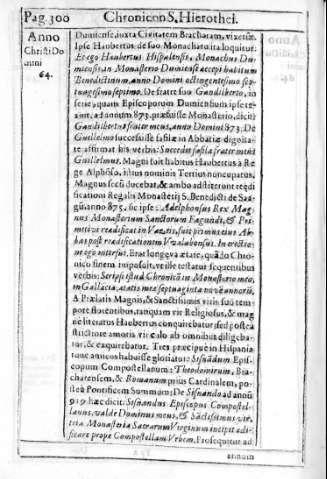 Pag. 300 Chronicon S. Hierothei.
Anno
Christi Do
mini
64.
Dumiense, iuxta Civitatem Bracharam, vixerũt.
Ipse Haubertus de suo Monachatu ita loquitur:
Et ego Haubertus Hispalensis, Monachus Du
miensis, in Monasterio Dumiensi accepi habitum
Benedictinum, anno Domini octingentesimo sep
tuagesimo septimo. De fratre suo Gandilberto, in
serie, quam Episcoporum Dumiensium ipse te
ad annum 873. præfuisse Monasterio, dicit:
Gandilbertus frater meus, anno Domini 873. De
Guilelmo successisse in Abbatiæ dignita
te affirmat his verbis: Succedit frater meus
Guilielmus. Magni fuit habitus Haubertus à Re
ge Alphõso, illius nominis Tertius nuncupatus,
Magnus secũ ducebat, & ambo adstiterunt reædi
ficationi Regalis Monasterij S. Benedicti de Saa
gũ, anno 875. sic ipse: Adelphonsus Rex Mag
nus Monasterium Sanctorum Facundi, & Pri
mitivi reædificat in fuit primus eius Ab
bas post reædificationem
me ego interfui. Erat longeva ætate, quãdo Chro
nico finem imposuit, velle testatur sequentibus
verbis: Scripsi istud Chronicon in Monasterio meo,
in Gallæcia, ætatis meæ septuaginta novẽ annorũ.
& Prælatis Magnis, & Sanctissimis viris suo tem
pore florentibus, tanquam vir Religiosus, & mag
næ literatus Haubertus conquirebatur sed postea
strictiore amoris vinculo ab omnibus diligeba-
tur, & exquirebatur. Tres præcipue in Hispania
tunc amicos habuisse gloriatur: Sisnãdum Epis-
copum Compostellanum: Theodomirum, Bra-
charensem, & Romanum prius Cardinalem, po-
steà Pontificem Summum: De Sisnando ad annũ
919 hæc dicit: Sisnandus Episcopus Compostel-
lanus, valde Dominus meus, & Sãctissimus vir,
Monasteria Sacrarum Virginum incipit ædi-
ficare prope Compostellam Vrbem. Prosequitur ad
annum